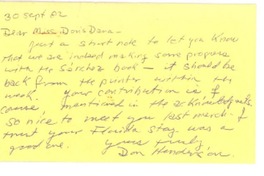 30 Sept 82
Dear Doris Dana -
Just a short note to let you know
that we are indeed making some progress
with the Sánchez book - it should be
back from the printer within the
week. Your contribution is, of
course, mentioned in the acknowledgments
so nice to meet you last March. I
trust your Florida stay was a
good one. Yours truly,
Don